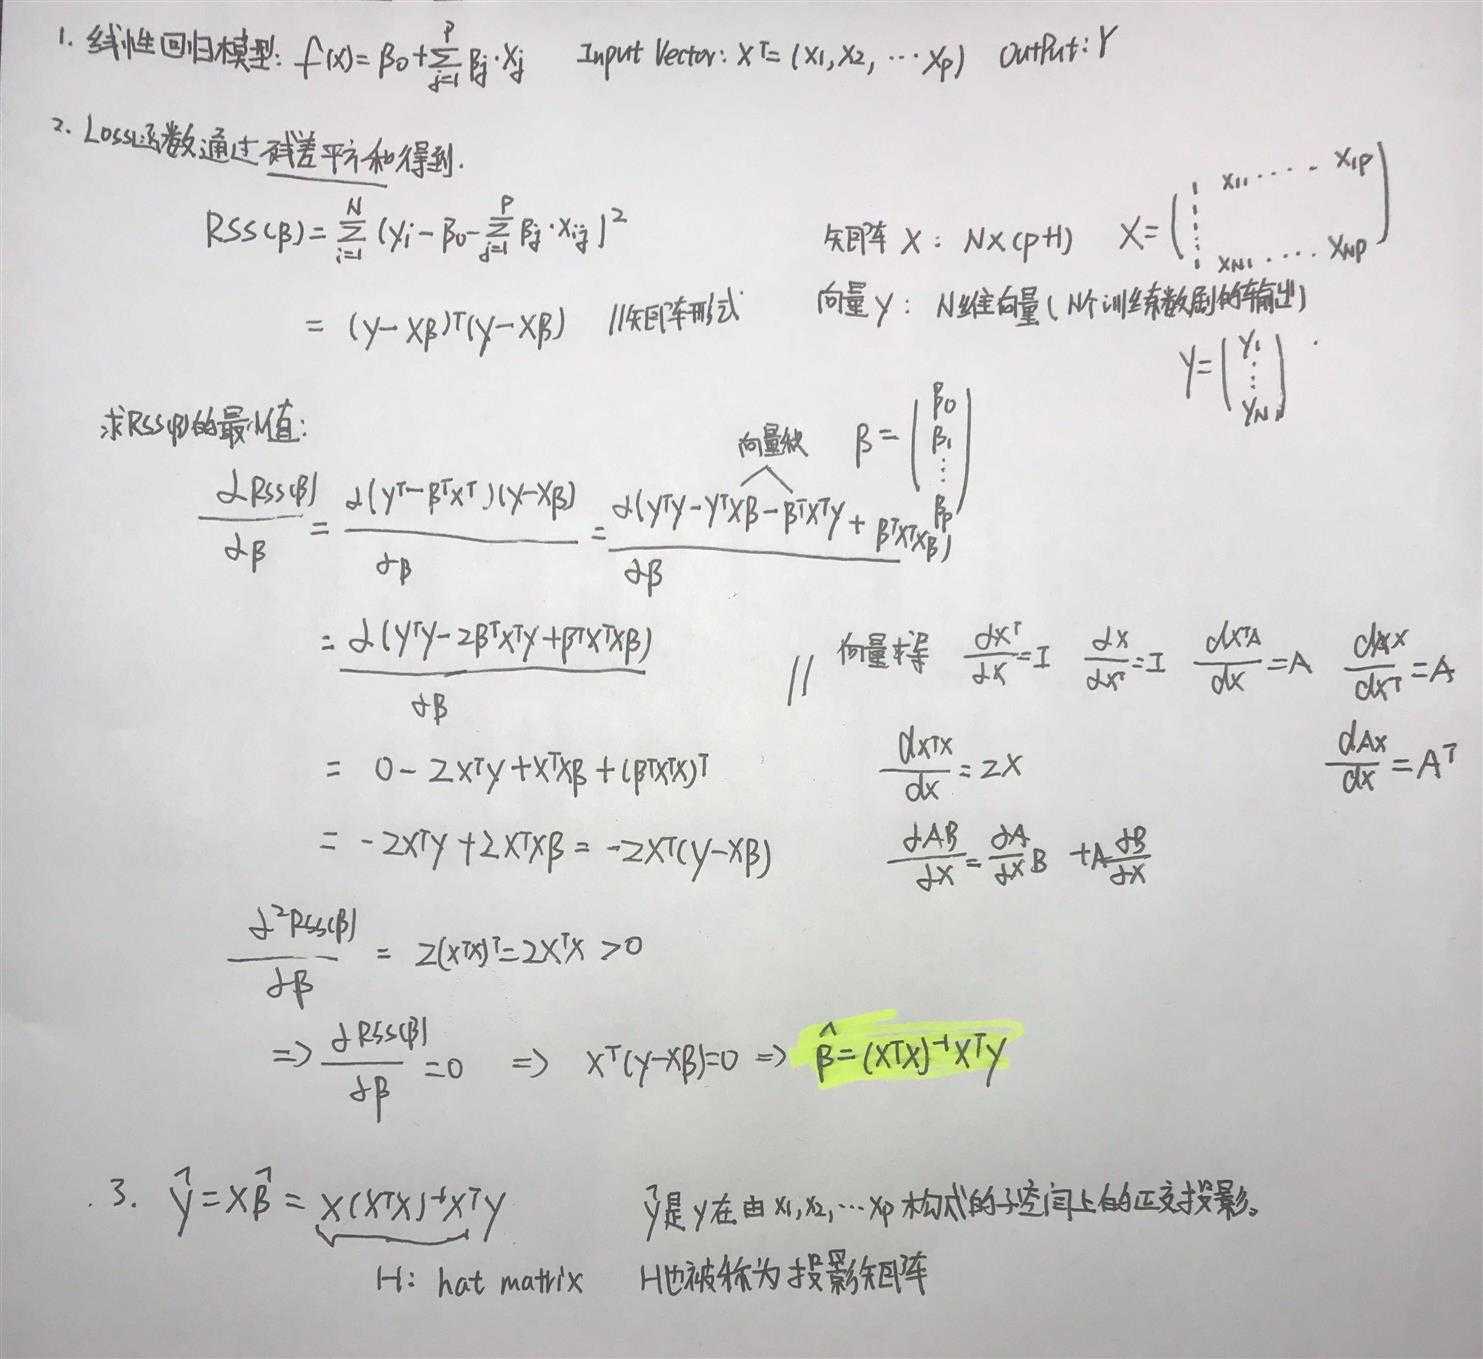 1. 线性回归模型: f(x) = β0 + Σ_{j=1}^{P} βj·Xj   Input Vector: X^T = (X1, X2, ··· Xp)   Output: Y
2. Loss函数通过残差平方和得到.
RSS(β) = Σ_{i=1}^{N} (yi − β0 − Σ_{j=1}^{P} βj·Xij)^2
矩阵 X: N×(p+1)   X = ( 1 X11 ····· X1p ⋮ 1 XN1 ····· XNp )
= (y − Xβ)^T (y − Xβ)   //矩阵形式
向量 y: N维向量 (N个训练数据的输出)
Y = ( Y1 ⋮ YN )
求RSS(β)的最小值:
向量积   β = ( β0 β1 ⋮ βp )
∂RSS(β)/∂β = ∂(Y^T − β^T X^T)(Y − Xβ)/∂β = ∂(Y^T Y − Y^T Xβ − β^T X^T Y + β^T X^T Xβ)/∂β
= ∂(Y^T Y − 2β^T X^T Y + β^T X^T Xβ)/∂β
// 向量求导   dX^T/dX = I   dX/dX^T = I   dX^T A/dX = A   dAX/dX^T = A
= 0 − 2X^T Y + X^T Xβ + (β^T X^T X)^T
dX^T X/dX = 2X   dAx/dx = A^T
= −2X^T Y + 2X^T Xβ = −2X^T (y − Xβ)
∂AB/∂X = ∂A/∂X B + A ∂B/∂X
∂^2 RSS(β)/∂β = 2(X^T X)^T = 2X^T X > 0
=> ∂RSS(β)/∂β = 0 => X^T (y − Xβ) = 0 => β̂ = (X^T X)^{-1} X^T y
3. ŷ = Xβ̂ = X(X^T X)^{-1} X^T y   ŷ是y在由X1, X2, ··· Xp构成的子空间上的正交投影。
H: hat matrix   H也被称为投影矩阵